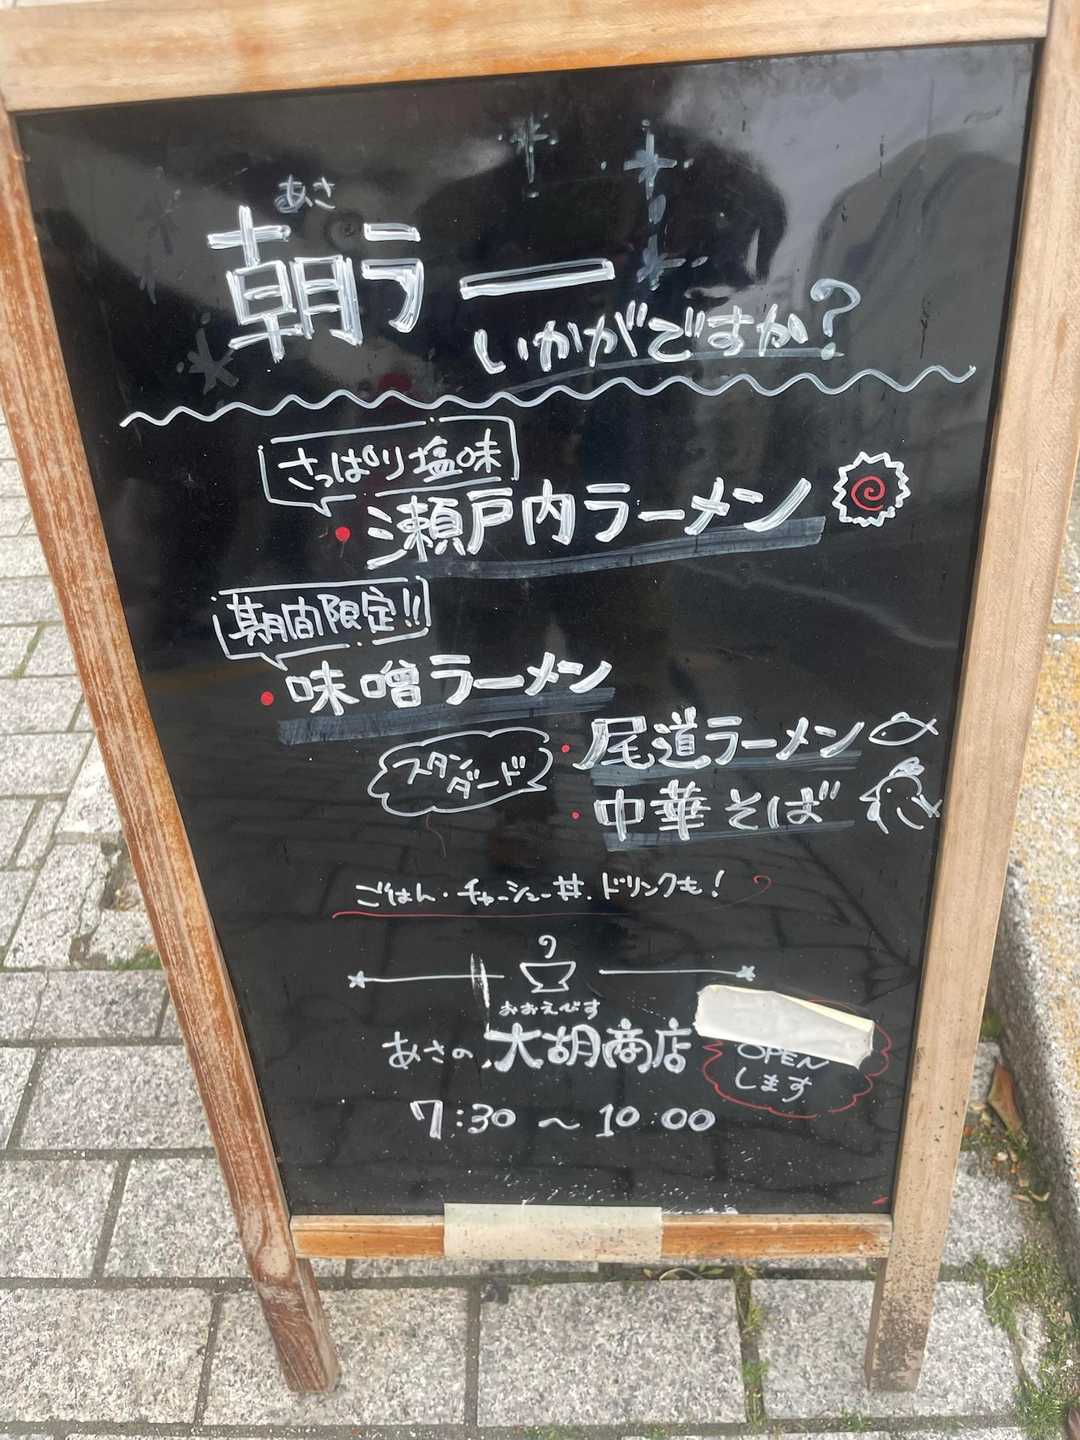 あさ
朝ラー
いかがですか?
さっぱり塩味
・瀬戸内ラーメン
期間限定!!
・味噌ラーメン
スタンダード
・尾道ラーメン
・中華そば
ごはん・チャーシュー丼・ドリンクも!
おおえびす
あさの大胡商店
OPEN
します
7:30 〜 10:00